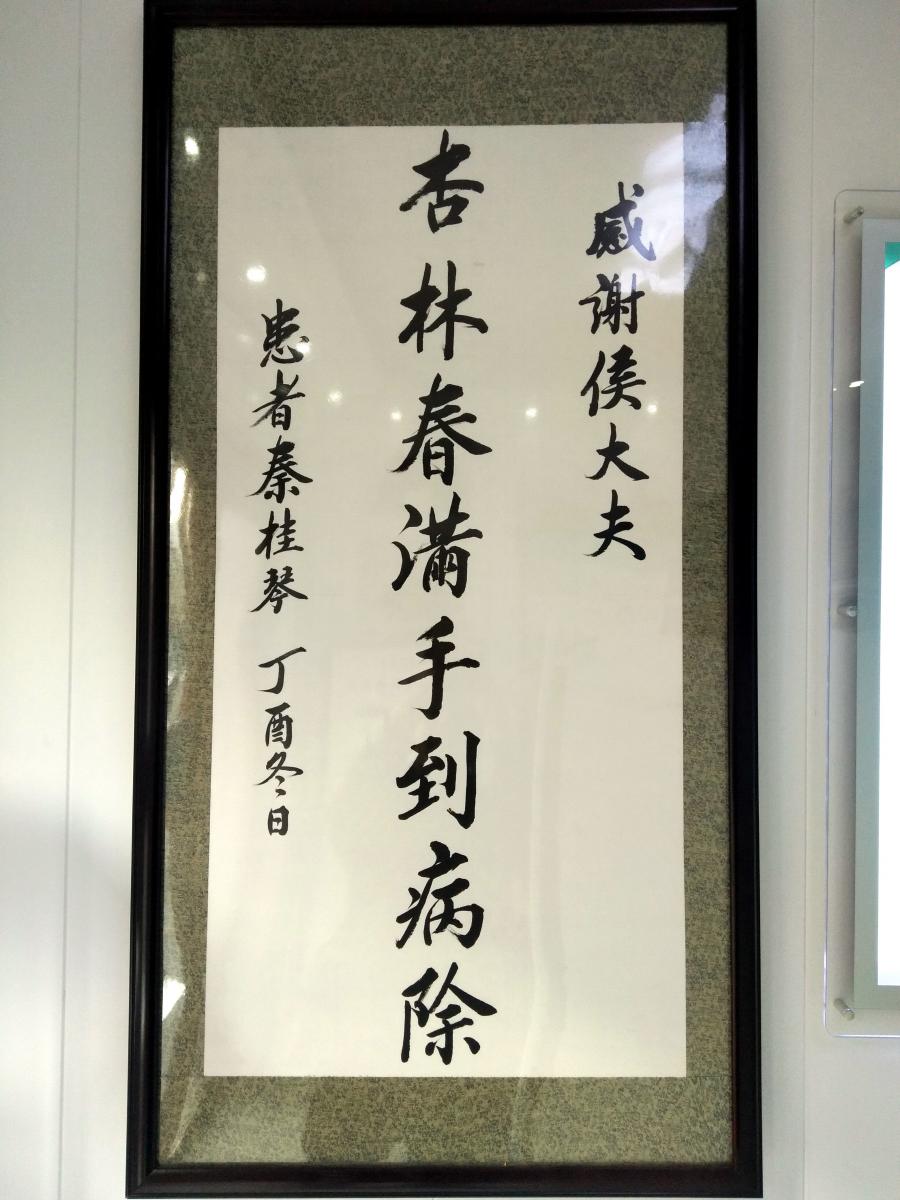 感谢侯大夫
杏林春满手到病除
患者秦桂琴 丁酉冬日